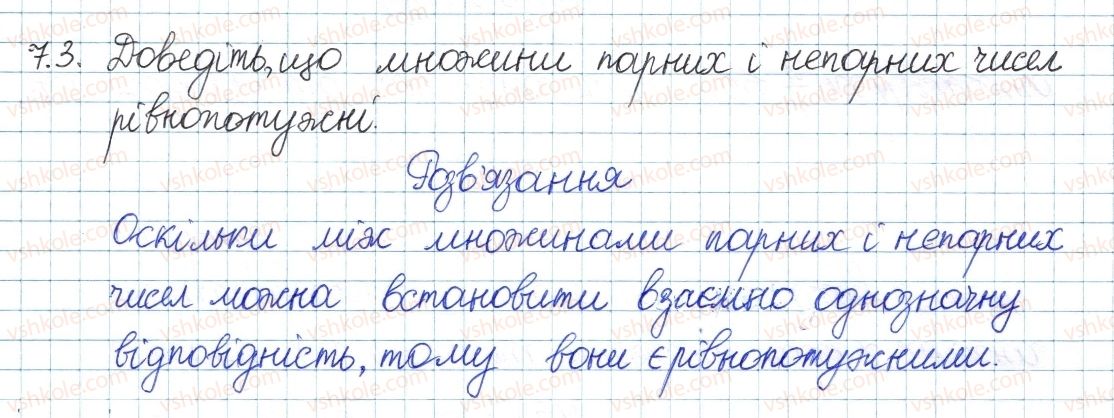 7.3. Доведіть, що множини парних і непарних чисел
рівнопотужні.
Розв'язання
Оскільки між множинами парних і непарних
чисел можна встановити взаємно однозначну
відповідність, тому вони є рівнопотужними.